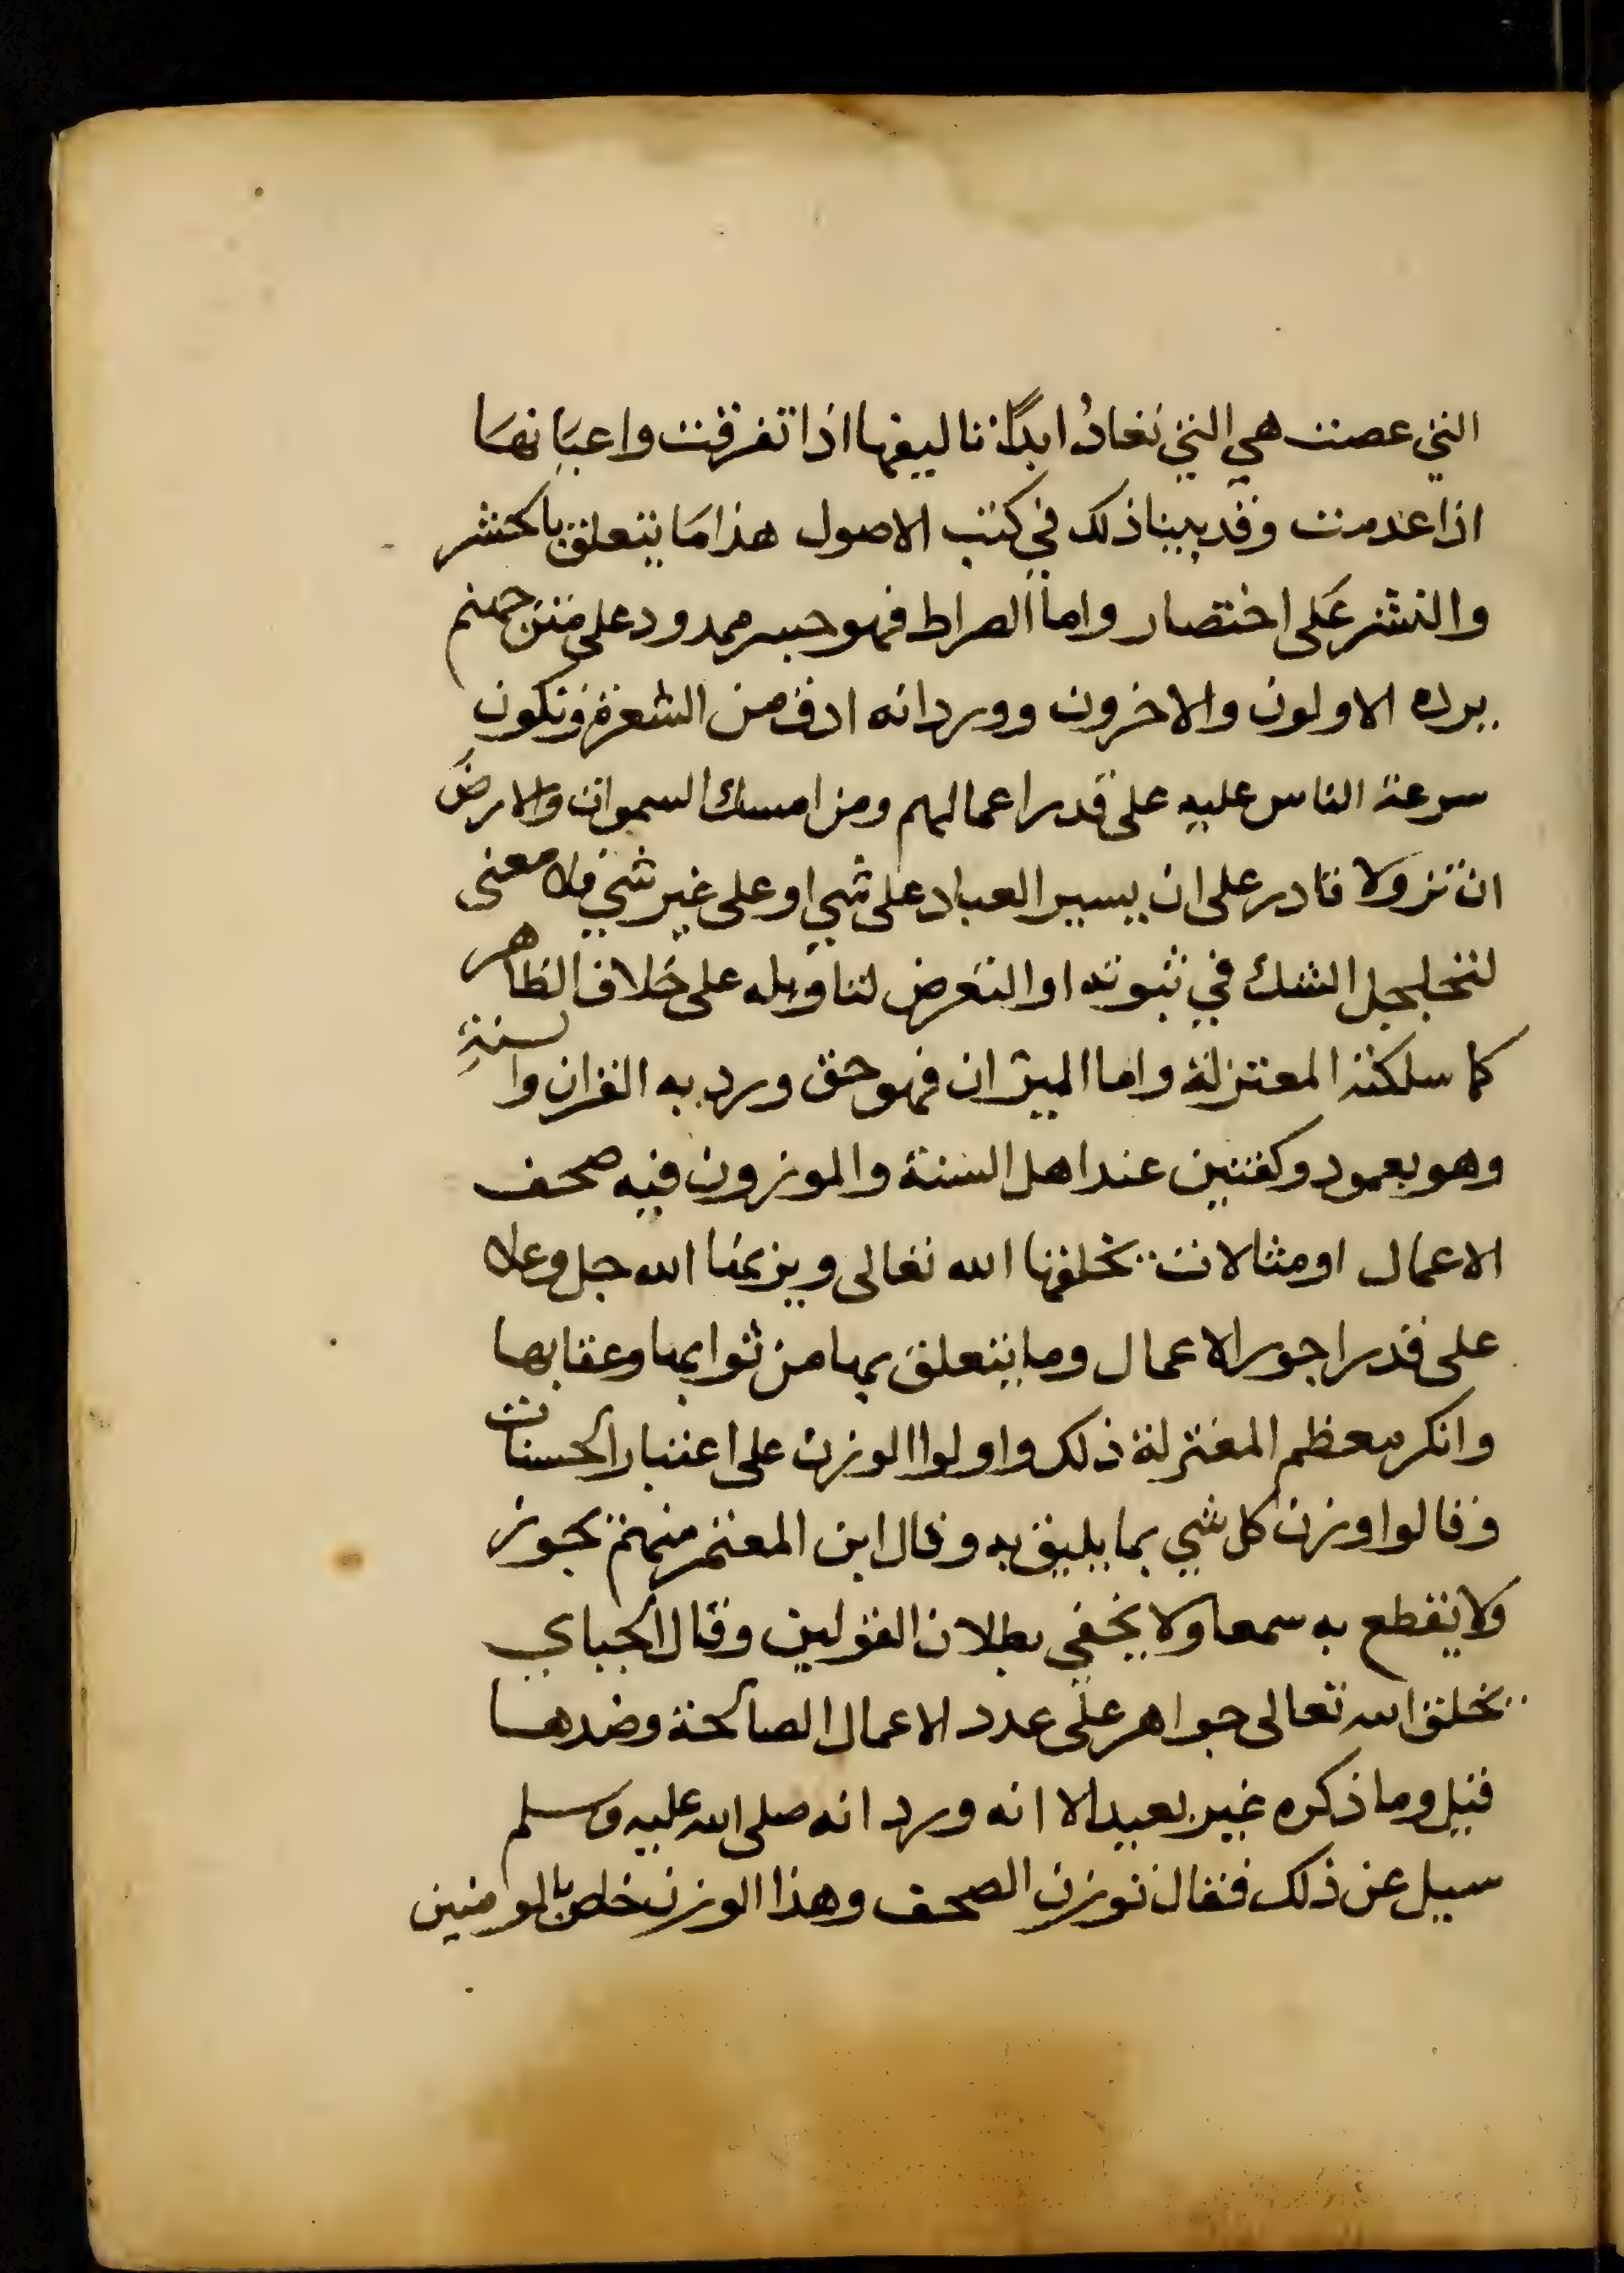 التي عصت هي التي تعاد ابدا تاليفها اذا تفرقت واعيانها
اذا عدمت وقد بينا ذلك في كتب الاصول هذا ما يتعلق بالحشر
والنشر على اختصار واما الصراط فهو جسر ممدود على متن جهنم
يرده الاولون والاخرون وورد انه ادق من الشعرة وتكون
سرعة الناس عليه على قدر اعمالهم ومن امسك السموات والارض
ان تزولا قادر على ان يسير العباد على شي او على غير شي فلا معنى
لتخلجل الشك في ثبوته او التعرض لتاويله على خلاف الظاهر
كما سلكته المعتزلة واما الميزان فهو حق ورد به القران والسنة
وهو بعمود وكفتين عند اهل السنة والموزون فيه صحف
الاعمال او مثالات يخلقها الله تعالى ويزنها الله جل وعلا
على قدر اجور الاعمال وما يتعلق بها من ثوابها وعقابها
وانكر معظم المعتزلة ذلك واولوا الوزن على اعتبار الحسنات
وقالوا وزن كل شي بما يليق به وقال ابن المعتمر منهم يجوز
ولا يقطع به سمعا ولا يخفي بطلان القولين وقال الجباي
يخلق الله تعالى جواهر على عدد الاعمال الصالحة وضدها
قيل وما ذكره غير بعيد الا انه ورد انه صلى الله عليه وسلم
سيل عن ذلك فقال توزن الصحف وهذا الوزن خاص بالمومنين